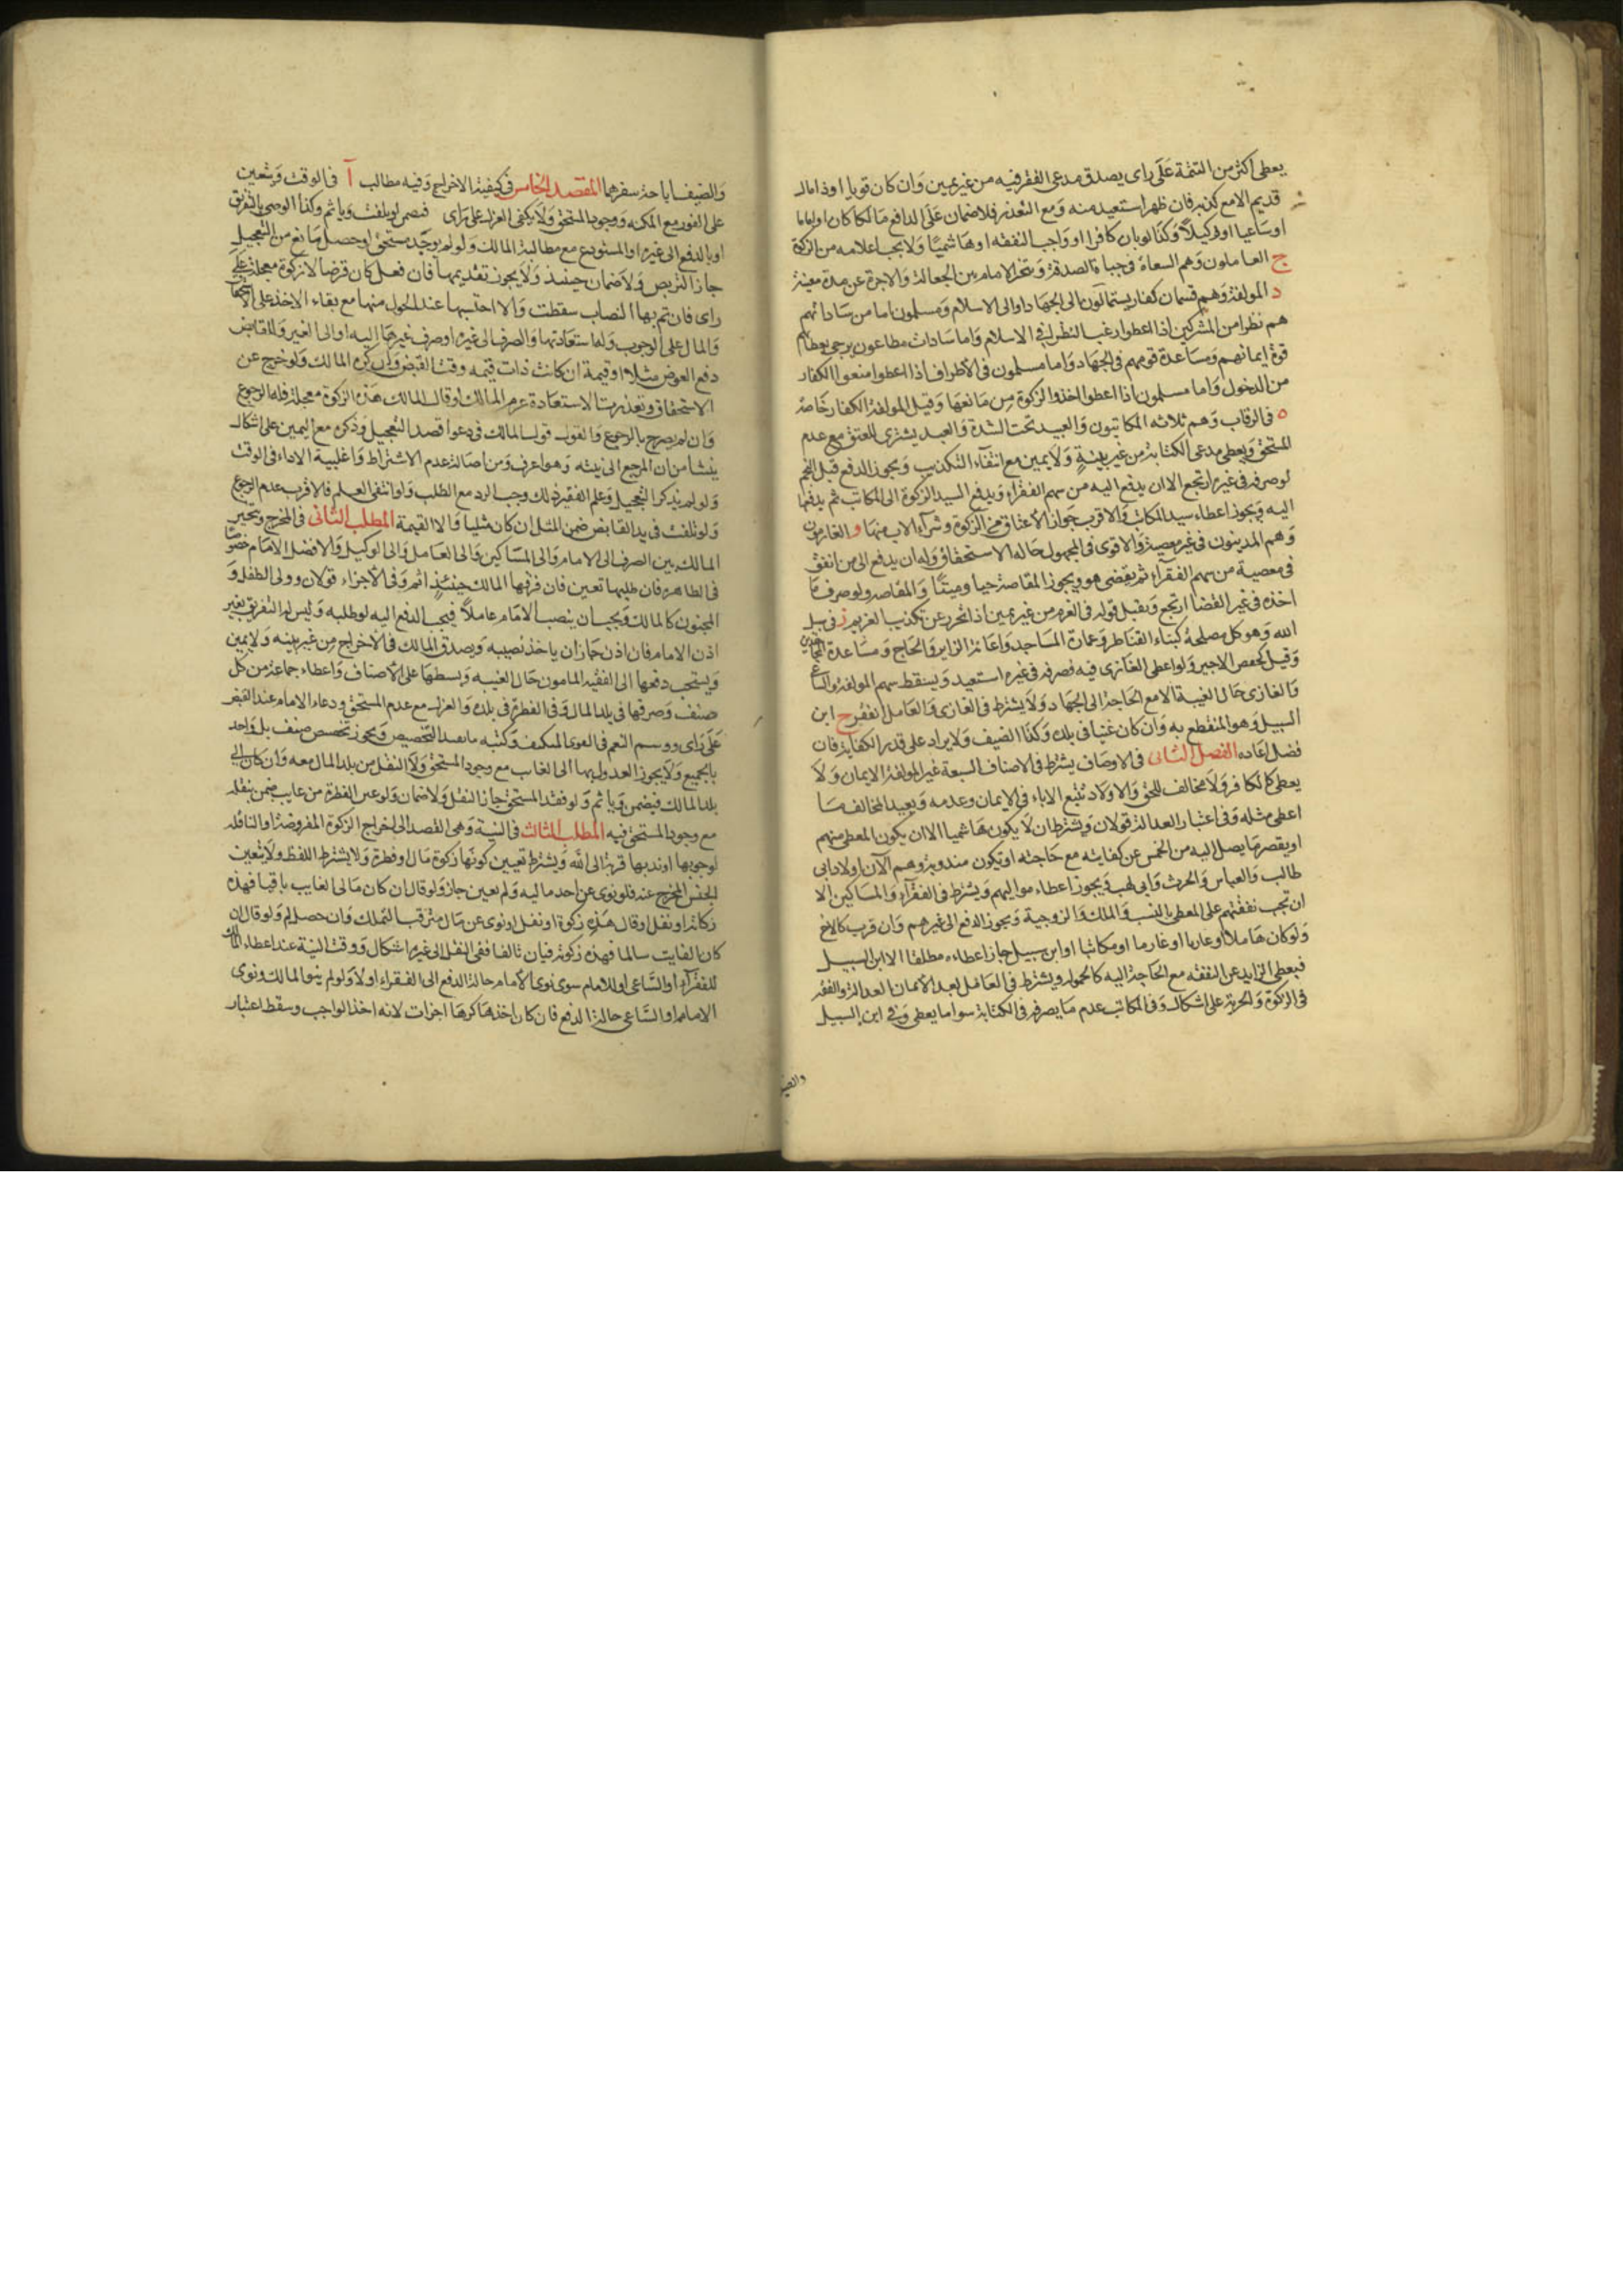 يعطى اكثر من التتمة على راى يصدق مدعى الفقر فيه من غير يمين وان كان قويا او ذا مال
قديم الا مع كذبه فان ظهر استعيد منه ومع التعذر فلا ضمان على الدافع مالكا كان او اماما
او ساعيا او وكيلا وكذا لو بان كافرا او واجب النفقه او هاشميا ولا يجب اعلامه من الزكوة
ج العاملون وهم السعاة فى جباة الصدقة ويتخير الامام بين الجعالة والاجرة عن مدة معينة
د المولفة وهم قسمان كفار يستمالون الى الجهاد او الى الاسلام ومسلمون اما من ساداتهم
هم نظرا من المشركين اذا اعطوا رغب النظراء فى الاسلام واما سادات مطاعون يرجى بعطائهم
قوة ايمانهم ومساعدة قومهم فى الجهاد واما مسلمون فى الاطراف اذا اعطوا منعوا الكفار
من الدخول واما مسلمون اذا اعطوا اخذوا الزكوة من مانعها وقيل المولفة الكفار خاصة
ه فى الرقاب وهم ثلاثه المكاتبون والعبيد تحت الشدة والعبد يشترى للعتق مع عدم
المستحق ويعطى مدعى الكتابة من غير بينة ولا يمين مع انتفاء التكذيب ويجوز الدفع قبل النجم
لو صرفه فى غيره ارتجع الا ان يدفع اليه من سهم الفقراء ويدفع السيد الزكوة الى المكاتب ثم يدفعها
اليه ويجوز اعطاء سيد المكاتب والاقرب جواز الاعتاق من الزكوة وشراء الاب منها و الغارمون
وهم المدينون فى غير معصية والاقوى فى المجهول حاله الاستحقاق وله ان يدفع الى من انفق
فى معصية من سهم الفقراء ثم يقضى هو ويجوز المقاصة حيا وميتا والمقاصه ولو صرف ما
اخذه فى غير القضا ارتجع ويقبل قوله فى الغرم من غير يمين اذا تجرد عن تكذيب الغريم ز فى سبيل
الله وهو كل مصلحة كبناء القناطر وعمارة المساجد واعانة الزاير والحاج ومساعدة المجاهدين
وقيل يختص الاخير ولو اعطى الغازى فيه فصرفه فى غيره استعيد ويسقط سهم المولفة والساعى
والغازى حال الغيبة الا مع الحاجة الى الجهاد ولا يشترط فى الغازى والعامل الفقر ح ابن
السبيل وهو المنقطع به وان كان غنيا فى بلده وكذا الضيف ولا يزاد على قدر الكفاية فان
فضل اعاده الفصل الثانى فى الاوصاف يشترط فى الاصناف السبعة غير المولفة الايمان ولا
يعطى كافر ولا مخالف للحق والاولاد تتبع الاباء فى الايمان وعدمه ويعيد المخالف ما
اعطى مثله وفى اعتبار العدالة قولان ويشترط ان لا يكون هاشميا الا ان يكون المعطى منهم
او يقصر ما يصل اليه من الخمس عن كفايته مع حاجته او تكون مندوبة وهم الآن اولاد ابى
طالب والعباس والحرث وابى لهب ويجوز اعطاء مواليهم ويشترط فى الفقراء والمساكين الا
ان تجب نفقتهم على المعطى بالنسب والملك والزوجية ويجوز الدفع الى غيرهم وان قرب كالاخ
ولو كان عاملا او غازيا او غارما او مكاتبا او ابن سبيل جاز اعطاءه مطلقا الا ابن السبيل
فيعطى الزايد عن النفقه مع الحاجة اليه كالحمولة ويشترط فى العامل بعد الايمان العدالة والفقه
فى الزكوة والحرية على اشكال وفى المكاتب عدم ما يصرفه فى الكتابة سوا ما يعطى وفى ابن السبيل
والضيف
والضيف اباحة سفرهما المقصد الخامس فى كيفية الاخراج وفيه مطالب آ فى الوقت ويتعين
على الفور مع المكنه ووجود المستحق ولا يكفى العزل على راى فيضمن لو تلفت وياثم وكذا الوصى بالتفريق
او بالدفع الى غيره او المستودع مع مطالبة المالك ولو لم يوجد مستحق او حصل مانع من التعجيل
جاز التربص ولا ضمان حينئذ ولا يجوز تقديمها فان فعل كان قرضا لا زكوة معجلة على
راى فان تم بها النصاب سقطت والا احتسبها عند الحول منها مع بقاء الاخذ على الاستحقاق
والمال على الوجوب وله استعادتها والصرف الى غيره او صرف غيرها اليه او الى الغير وللقابض
دفع العوض مثلا او قيمة ان كانت ذات قيمه وقت القبض وان كره المالك ولو خرج عن
الاستحقاق وتعذرت الاستعادة غرم المالك او قال المالك هذه الزكوة معجلة فله الرجوع
وان لم يصرح بالرجوع والقول قول المالك فى دعوا قصد التعجيل وذكره مع اليمين على اشكال
ينشا من ان المرجع الى نيته وهو اعرف ومن اصالة عدم الاشتراط واغلبية الاداء فى الوقت
ولو لم يذكر التعجيل وعلم الفقير ذلك وجب الرد مع الطلب ولو انتفى العلم فالاقرب عدم الرجوع
ولو تلفت فى يد القابض ضمن المثل ان كان مثليا والا القيمة المطلب الثانى فى المخرج ويتخير
المالك بين الصرف الى الامام والى المساكين والى العامل والى الوكيل والافضل الامام خصوصا
فى الظاهره فان طلبها تعين فان فرقها المالك حينئذ اثم وفى الاجزاء قولان وولى الطفل و
المجنون كالمالك ويجب ان ينصب الامام عاملا فيجب الدفع اليه لو طلبه وليس له التفريق بغير
اذن الامام فان اذن جاز ان ياخذ نصيبه ويصدق المالك فى الاخراج من غير بينه ولا يمين
ويستحب دفعها الى الفقيه المامون حال الغيبه وبسطها على الاصناف واعطاء جماعة من كل
صنف وصرفها فى بلد المال وفى الفطرة فى بلده والعزل مع عدم المستحق ودعاء الامام عند القبض
على راى ووسم النعم فى القوى المنكشف وكتبه ما يفيد التخصيص ويجوز تخصيص صنف بل واحد
بالجميع ولا يجوز العدول بها الى الغايب مع وجود المستحق ولا النقل من بلد المال معه وان كان الى
بلد المالك فيضمن وياثم ولو فقد المستحق جاز النقل ولا ضمان ولو عين الفطرة من غايب ضمن بنقله
مع وجود المستحق فيه المطلب الثالث فى النية وهى القصد الى اخراج الزكوة المفروضة او النافله
لوجوبها او ندبها قربة الى الله ويشترط تعيين كونها زكوة مال او فطرة ولا يشترط اللفظ ولا يتعين
الجنس المخرج عنه فلو نوى عن احد ماليه ولم يعين جاز ولو قال ان كان مالى الغايب باقيا فهذه
زكاته او نفل او قال هذه زكوة او نفل او نوى عن مال مترقب التملك وان حصل لم ولو قال ان
كان الغايب سالما فهذه زكوته فبان تالفا ففى النقل الى غيره اشكال ووقت النية عند اعطاء المالك
للفقراء او الساعى او للامام سوى نوى الامام حالة الدفع الى الفقراء اولا ولو لم ينو المالك ونوى
الامام او الساعى حالة الدفع فان كان اخذها كرها اجزات لانه اخذ الواجب وسقط اعتبار